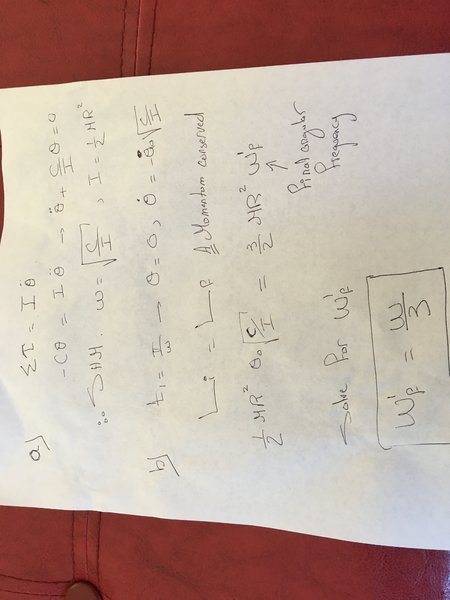 a)
Στ = Iθ̈
-Cθ = Iθ̈ → θ̈ + C/I θ = 0
∴ SHM. ω = √(C/I), I = ½ MR²
b)
t₁ = π/ω → θ = 0, θ̇ = θ₀√(C/I)
Li = Lf Momentum conserved
½ MR² θ₀ √(C/I) = 3/2 MR² ω'f
↑
final angular
frequency
Solve for ω'f
ω'f = ω/3